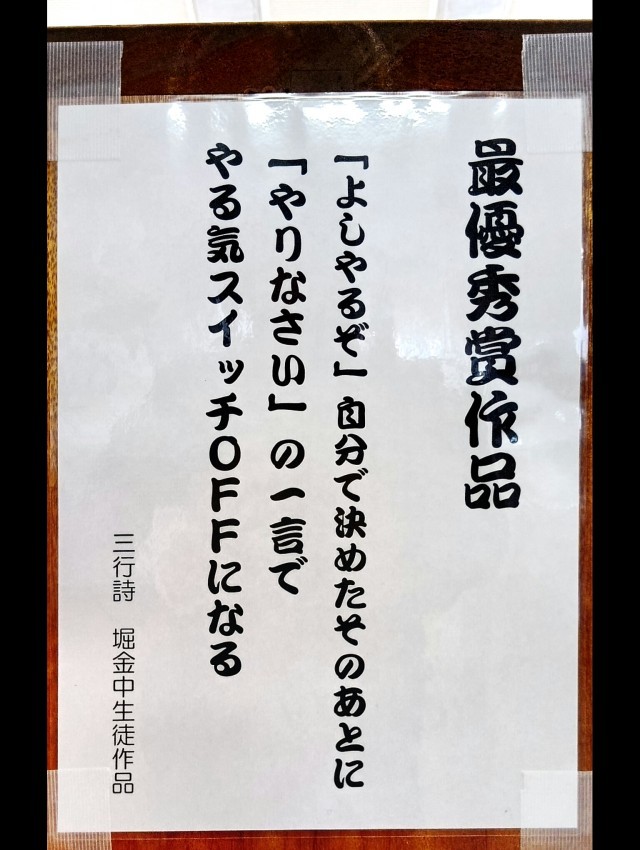 最優秀賞作品
「よしやるぞ」自分で決めたそのあとに
「やりなさい」の一言で
やる気スイッチOFFになる
三行詩　堀金中生徒作品